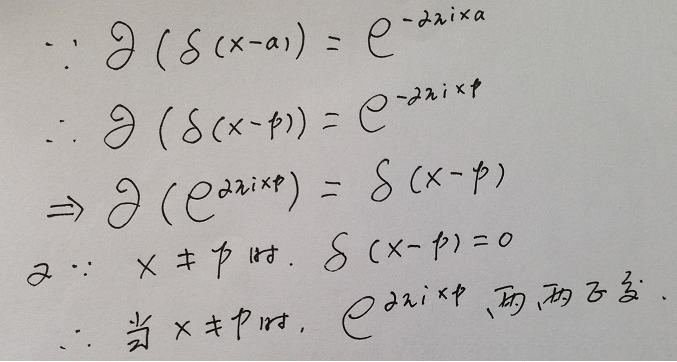 ∵ ℱ(δ(x-a)) = e^{-2πixa}
∴ ℱ(δ(x-p)) = e^{-2πixp}
⇒ ℱ(e^{2πixp}) = δ(x-p)
又∵ x≠p时. δ(x-p)=0
∴ 当x≠p时, e^{2πixp} 两两正交.